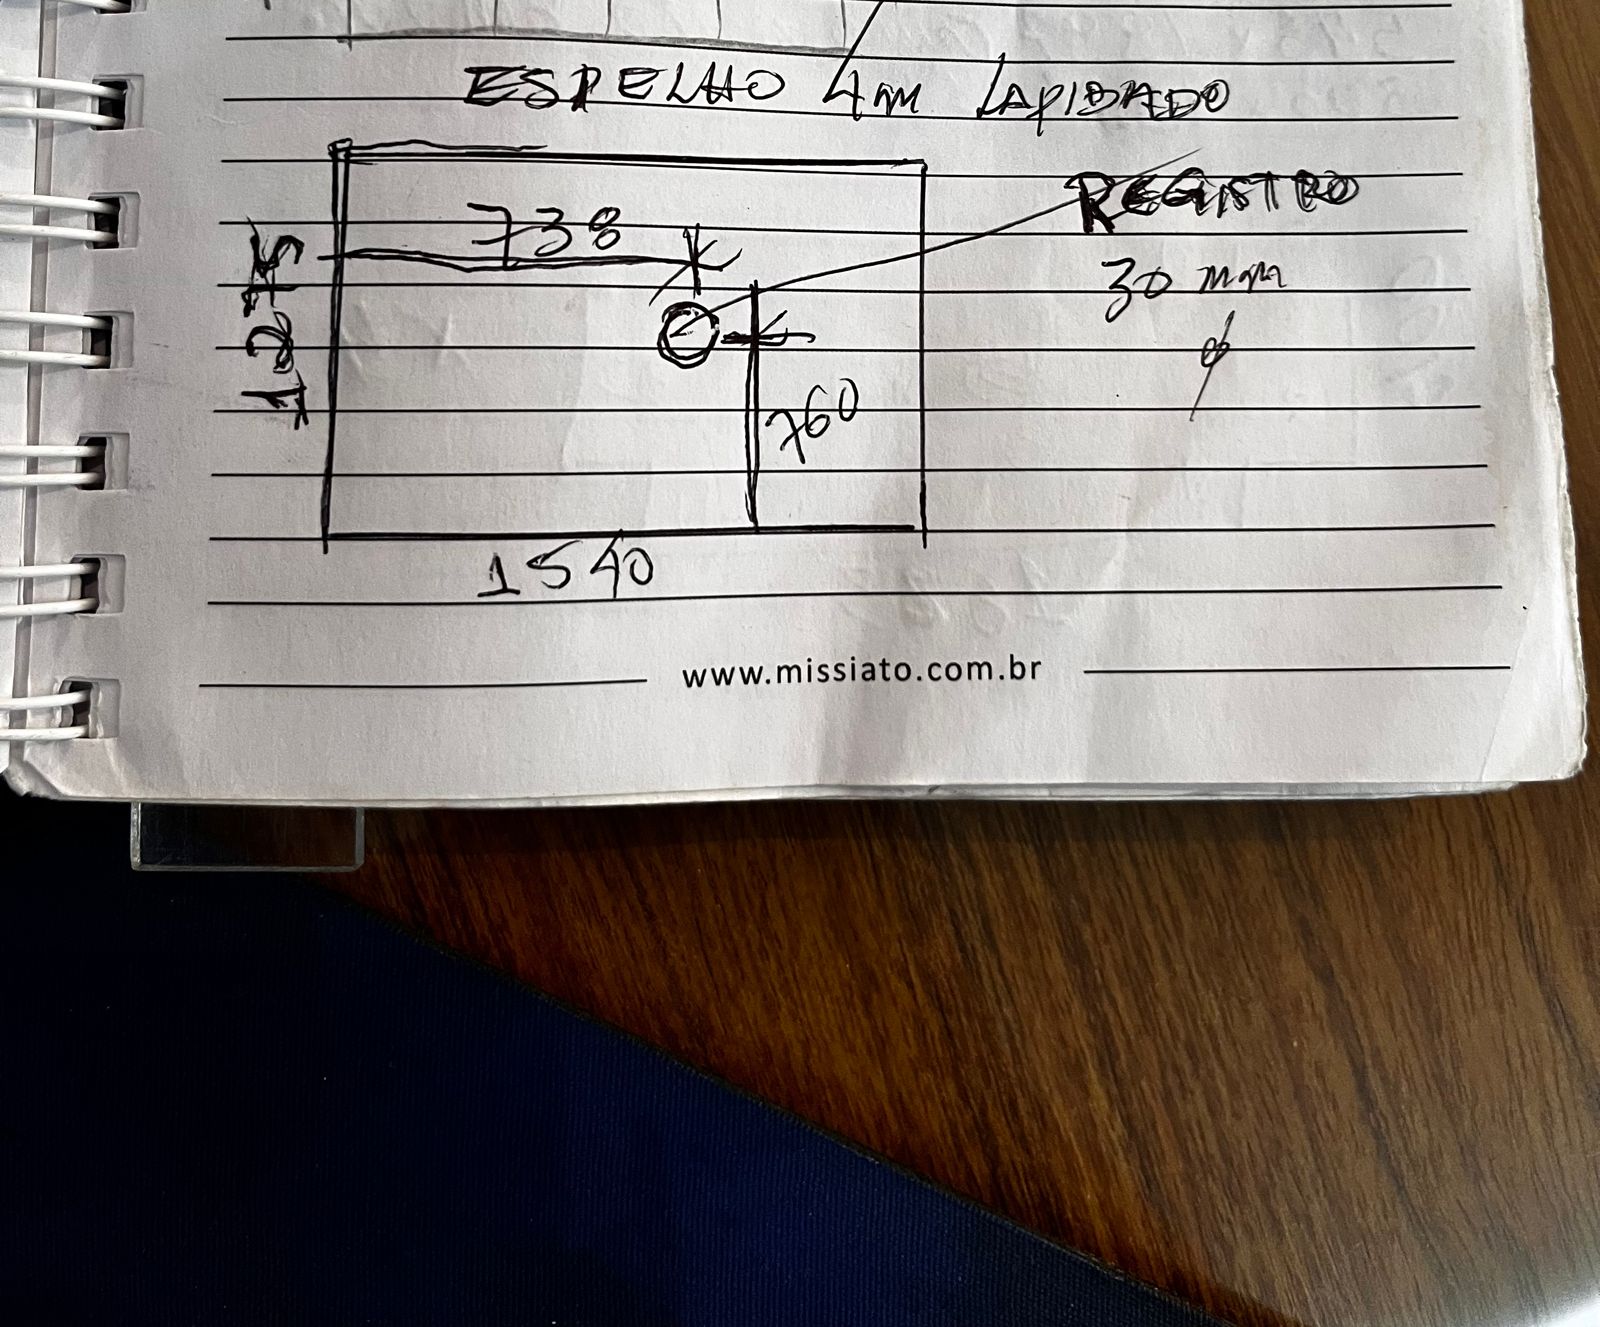 ESPELHO 4mm LAPIDADO
738
REGISTRO
30 mm
ø
1275
760
1540
www.missiato.com.br